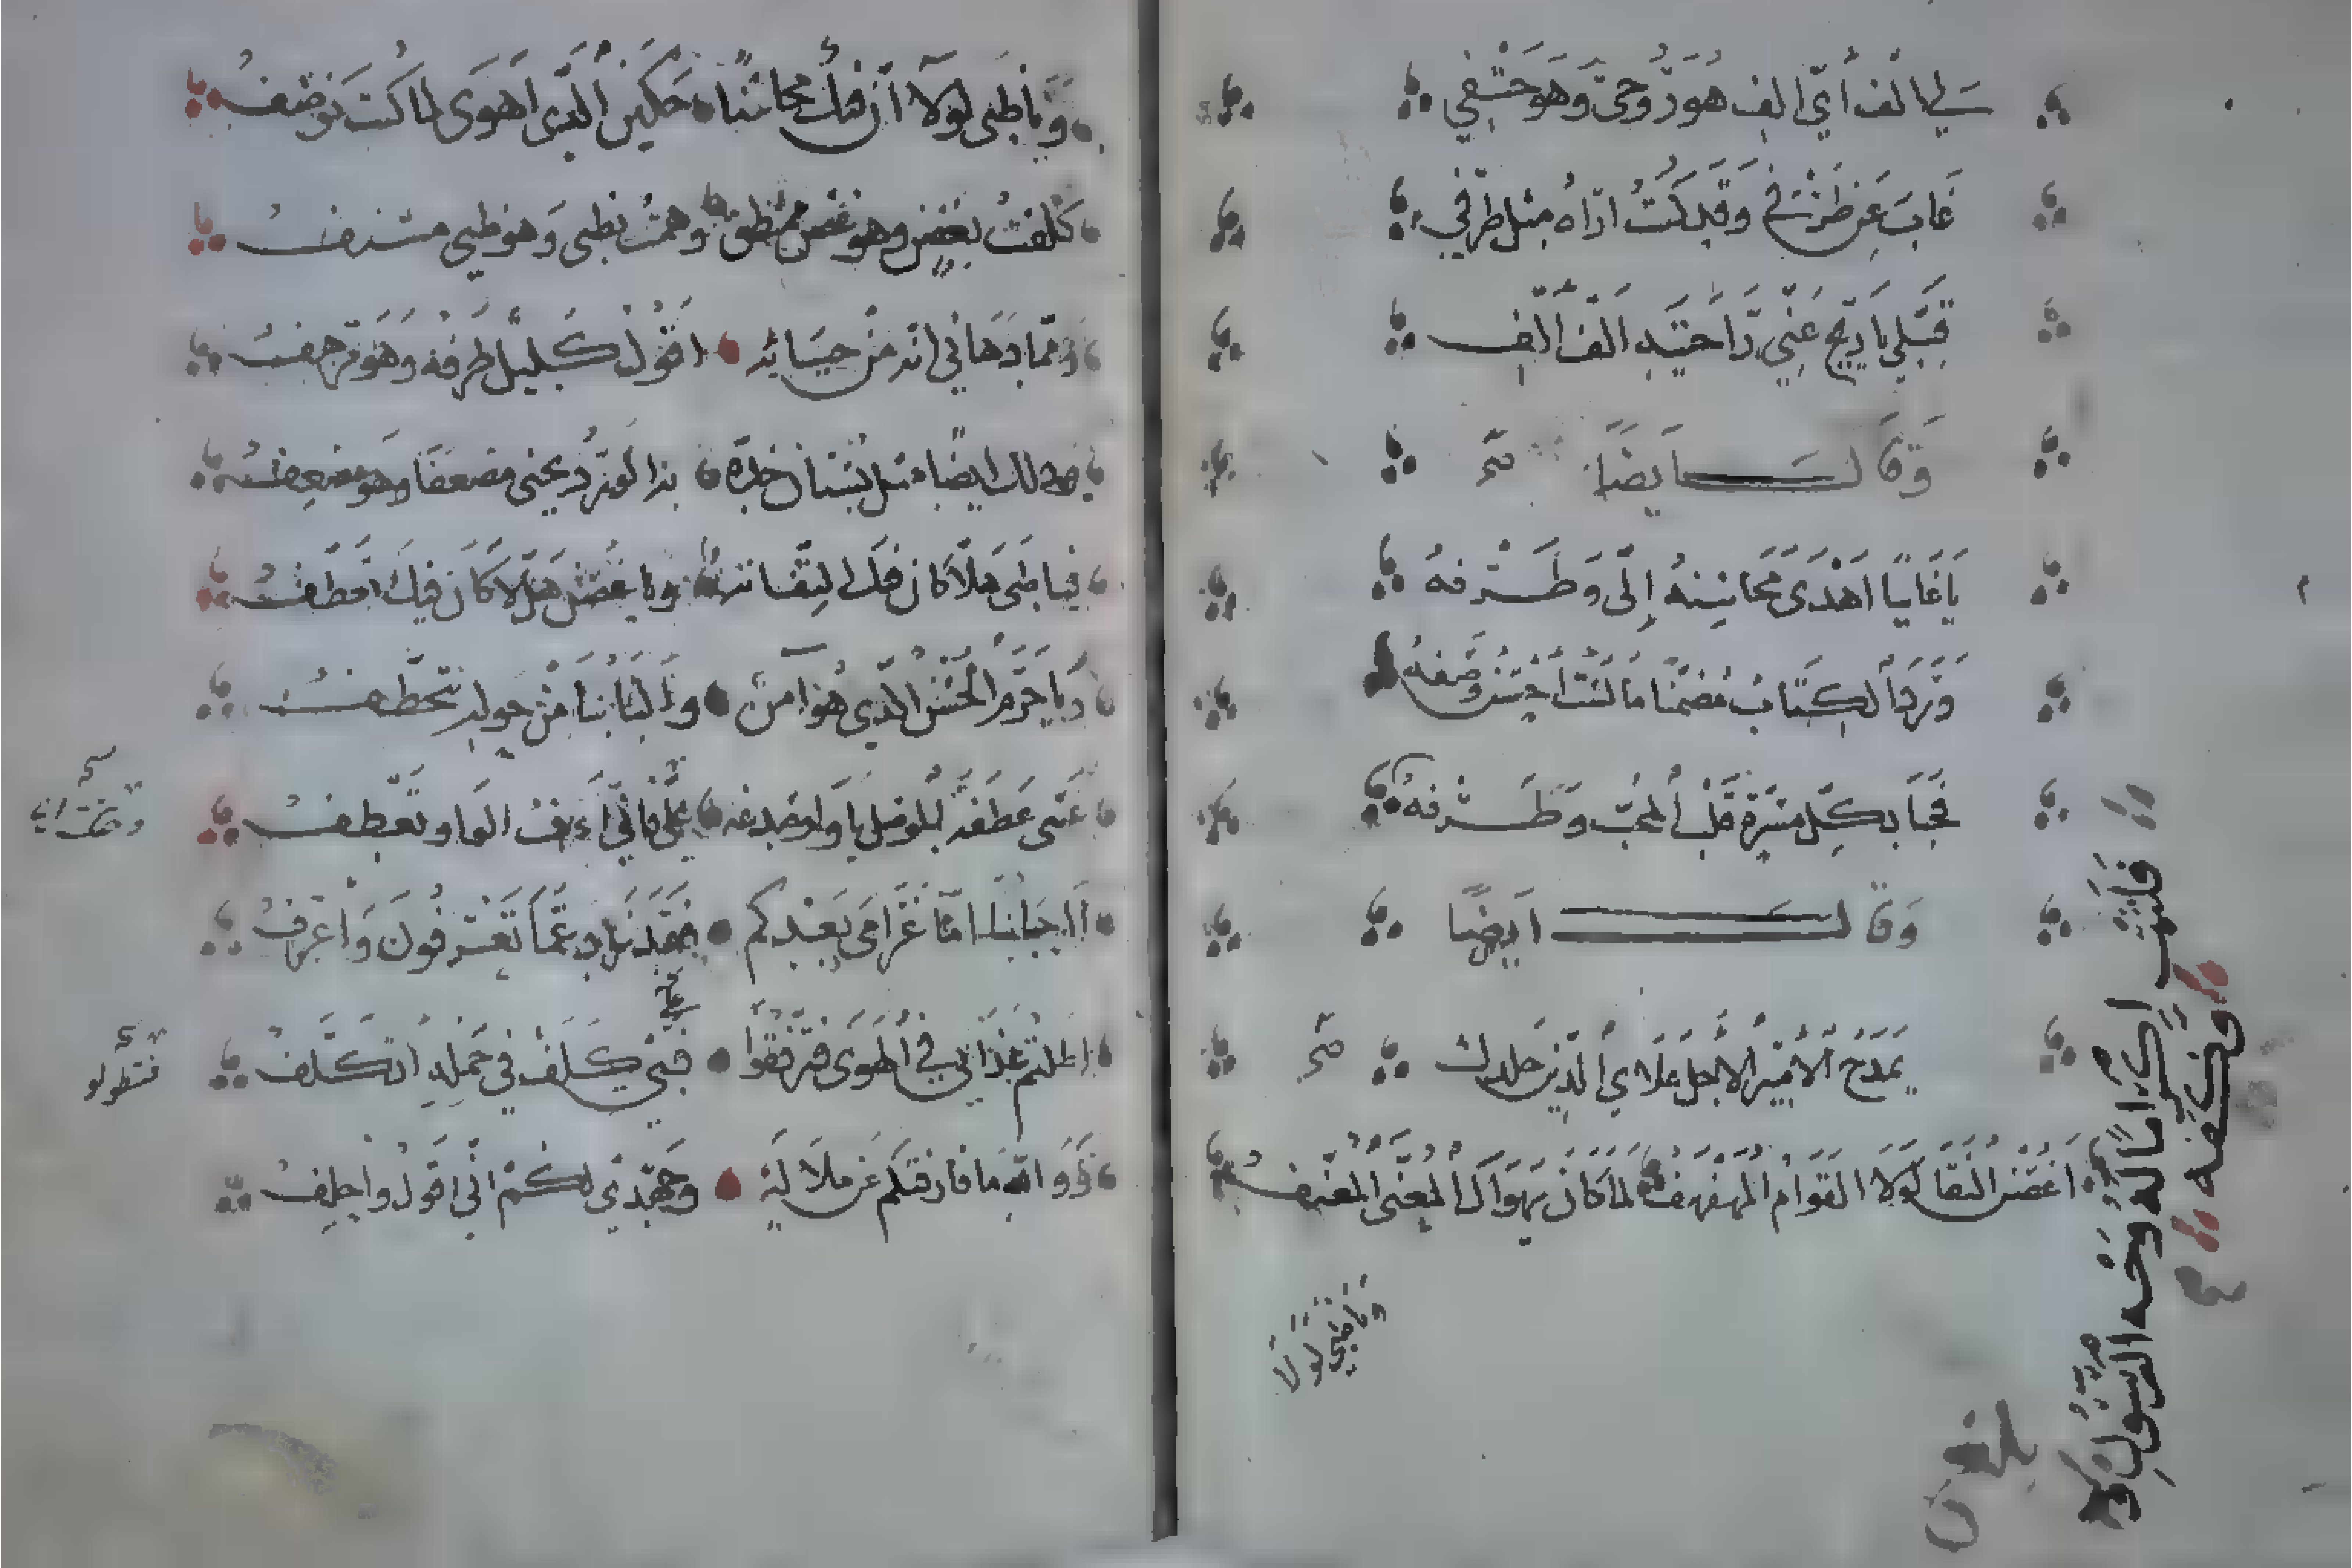 لي الف أي الف هو روحي وهو حتفي
غاب عن طرفي وقد كنت اراه مثل طرفي
قبلي يا ريح عني راحتيه الف الف
وقال ايضا
يا غايبا اهدى محاسنه إلي وظرفه
ورد الكتاب مضمنا ما لست احسن وصفه
فحبا بكل مسرة قلب المحب وطرفه
وقال ايضا
يمدح الامير الاجل علاء الدين
اغصن النقا لولا القوام المهفهف لما كان يهواك المعنى المعنف
ويا ظبي لولا
فلثمت اكراما له وجه الرسول
وكفه
ويا ظبي لولا أن فيك محاسنا حكين الذي اهوى لما كنت توصف
كلفت بغصن وهو غصن ممنطق وهمت بظبي وهو ظبي مشنف
ومما دهاني انه من حيائه اقول كليل طرفه وهو مرهف
وذلك ايضا مثل بستان خده به الورد يجنى مضعفا وهو مضعف
فيا ظبي هلا كان فيك التفاتة ويا غصن هلا كان فيك تعطف
ويا حرم الحسن الذي هو آمن والبابنا من حوله تتخطف
عسى عطفة للوصل يا واو صدغه علي فاني اعرف الواو تعطف
أأحبابنا اما غرامي بعدكم فقد زاد عما تعرفون واعرف
اطلتم عذابي في الهوى فترفقوا فبي كلف في حمله اتكلف
ووالله ما فارقتكم عن ملالة وجهدي لكم اني اقول واحلف